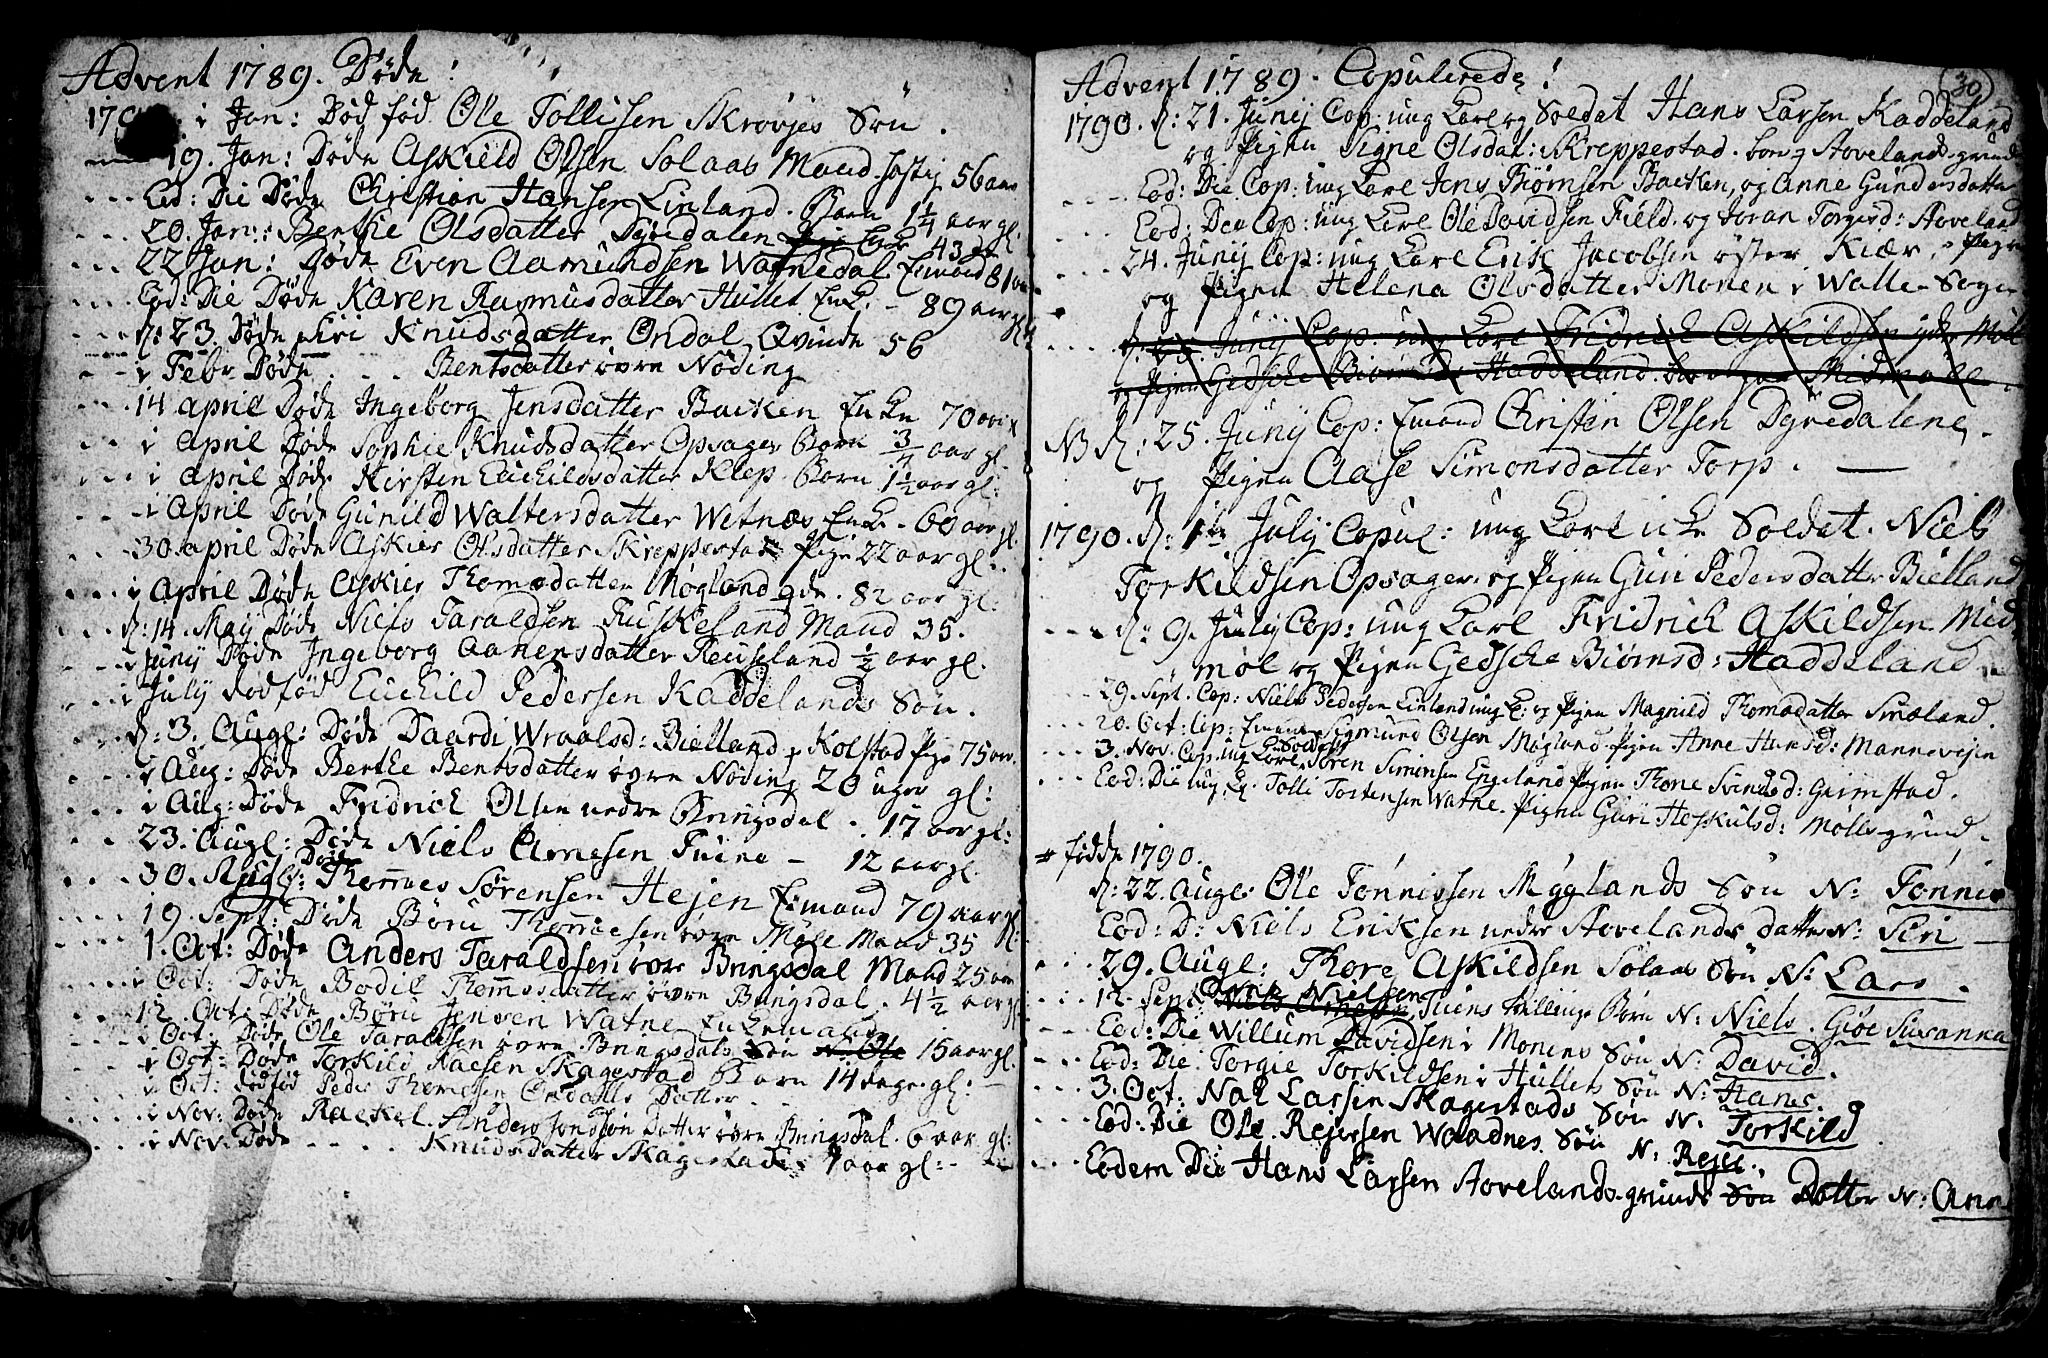 Advent 1789. Døde!
179 i Jan: Død fød Ole Tollisen Skrøvjes Søn.
19. Jan: Døde Askield Olsen Solaas Mand 56 aar
Eod: Die Døde Christian Hansen Linland. Barn 1 1/4 aar gl:
20. Jan: Berthe Olsdatter Dyredalen 43
22 Jan: Døde Even Aamundsen Watnedal Enmand 81
Eod: Die Døde Karen Rasmusdatter Hullet Enk. - 89 aar gl
d: 23. Døde Siri Knudsdatter Ondal Qvinde 56
i Febr Døde . . . Bentsdatter øvre Nøding
14 april Døde Ingeborg Jensdatter Backen Enke 70
i April Døde Sophie Knudsdatter Opsager Barn 3/4 aar gl.
i April Døde Kirsten Euchildsdatter Klep Barn 1 1/2 aar gl:
i April Døde Gunild Waltersdatter Wetnæs Enk. - 60 aar gl.
30 april Døde Askier Olsdatter Skreppestad Pige 22 aar gl:
i April Døde Askier Thomasdatter Møgland. 82 aar gl:
d: 14. May Døde Niels Taraldsen Fuskeland Mand 35.
i Juny Døde Ingeborg Aanensdatter Reuseland 1/2 aar gl.
i July dødfød Euchild Pedersen Kaddelands Søn.
d: 3. Augl: Døde Daardi Wraalsd: Bielland, Kolstad Pige 75
i Aug: Døde Berthe Bentsdatter øvre Nøding 20 uger gl:
i Aug: Døde Fridrich Olsen nedre Bringsdal. 17 aar gl:
23. Augl: Døde Niels Arnesen Fuene - 12 aar gl.
30. Augl: Døde Thomes Sørensen Hejen Enmand 79 aar gl:
19. Sept: Døde Børu Thomesen øvre Møle Mand 35
1. Oct: Døde Anders Taraldsen øvre Bringsdal Mand 25 aar
i Oct: Døde Bodil Thomesdatter øvre Bringsdal. 4 1/2 aar gl
12. Oct: Døde Børu Jensen Watne Enkemand
i Oct: Døde Ole Taraldsen øvre Bringsdals Søn N: Ole 15 aar gl.
i Oct: Døde Torkild Aaesen Skagestad Barn 14 dage gl.
i Oct: dødfød Peder Thomesen Ondahls Datter
i Nov: Døde Rackel Anders Jonssøn Datter øvre Bringsdal. 6 aar gl:
i Nov: Døde . . . . Knudsdatter Skagestad 1 aar gl:
Advent 1789. Copulerede!
(30)
1790. d: 21. Juny Cop: ung Karl og Soldat Hans Larsen Kaddeland
og Pigen Signe Olsdat: Skreppestad. Aovelands grund
Eod: Die Cop: ung Karl Jens Biørnsen Backen, og Anne Gundersdatter
Eod: Die Cop: ung Karl Ole Davidsen Field. og Joran Torgersd: Aoveland
24. Juny Cop: ung Karl Erik Jacobsen øster Kiær,
og Pigen Helena Olsdatter Monen i Walle Sogn
d: 25 Juny Cop: ung Karl Fridrich Askildsen Møl
og Pigen Gedsche Biørnsd: Haddeland. Midmøle
NB d: 25. Juny Cop: Enmand Christen Olsen Dyredalene,
og Pigen Aase Simonsdatter Torp.
1790. d: 1te July Copul: ung Karl Soldat. Niels
Torkildsen Opsager. og Pigen Guri Pedersdatter Bielland
d: 9. July Cop: ung Karl Fridrich Askildsen Mid-
møl og Pigen Gedsche Biørnsd: Haddeland
29. Sept. Cop: Niels Pedersen Linland ung K: og Pigen Magnild Thomasdatter Smæland.
20. Oct: Cop: Enmand Sigmund Olsen Møgland Pigen Anne Hansd: Mannevejen
3. Nov. Cop: ung Karl Soldat Søren Simonsen Engeland Pigen Thone Svindsd: Grimstad.
Eod: Die ung K. Tolli Tostensen Watne. Pigen Guri Heskulsd: Mølle grund.
fødde 1790.
d: 22. Augl: Ole Tønnissen Møglands Søn N: Tønnis
Eod: D: Niels Eriksen nedre Aovelands datter N: Siri
29. Augl: Thore Askildsen Solaas Søn N: Lars.
12. Sept: Arne Nielsen Fuens Tvillinge Børn N: Niels. Gjøe Susanna
Eod: Die Willum Davidsen i Monens Søn N: David.
Eod: Die: Torgie Torkildsen i Hullets Søn N: Hans.
3. Oct: Nal Larsen Skagestads Søn N. Torkild
Eod: Die Ole Rejersen Waadnes. Søn N: Rejer.
Eodem Die Hans Larsen Aovelands grunds Søn Datter N: Ann